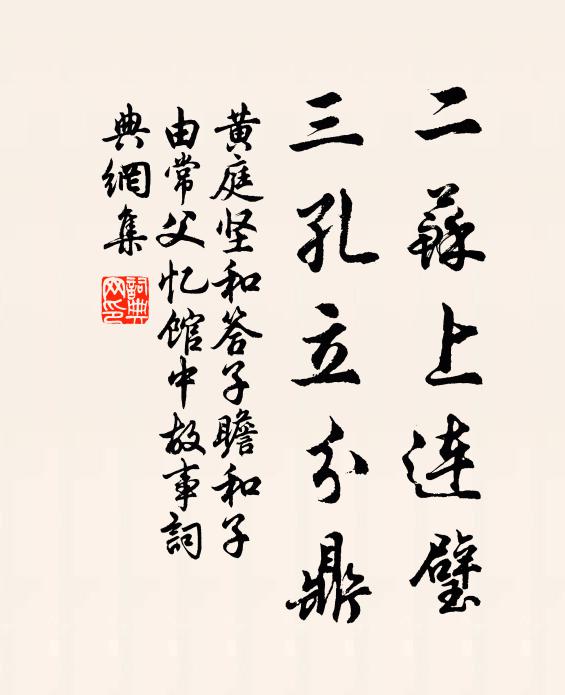 二蘇上連璧
三孔立分鼎
黄庭坚和答子瞻和子
由常父忆馆中故事詞
典網集
詞典网印